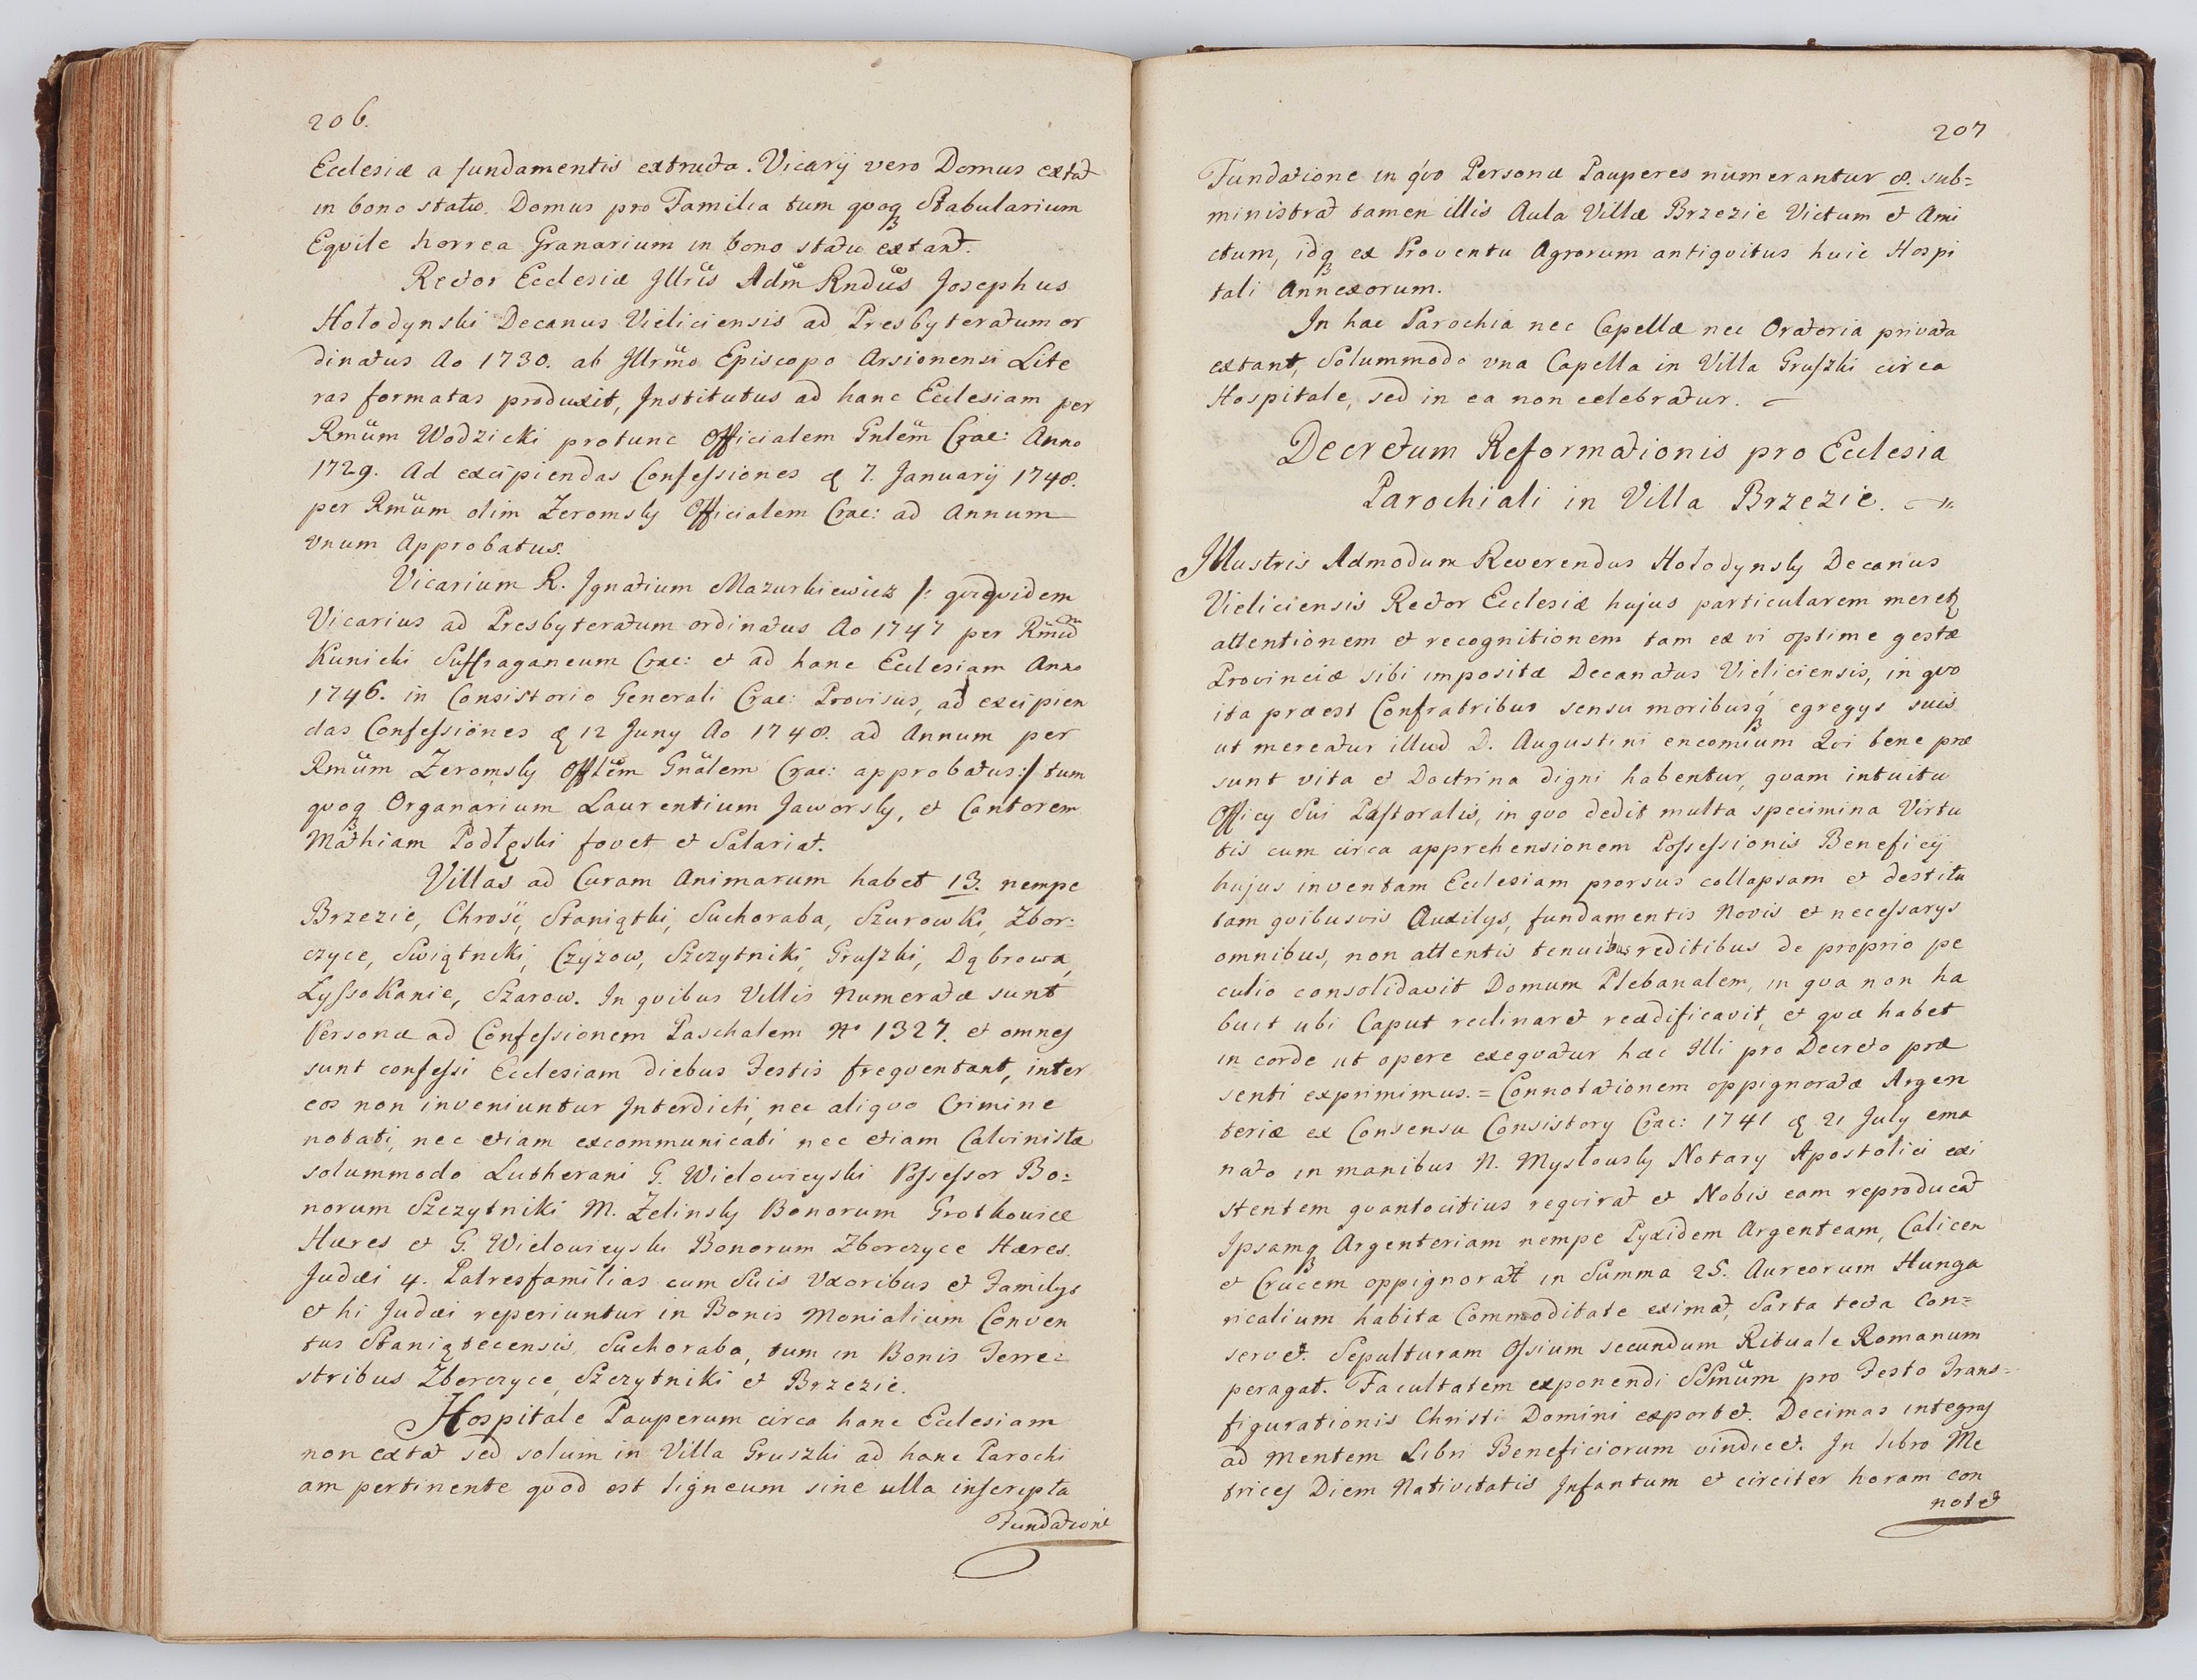 206.
Ecclesiæ a fundamentis extructa. Vicarij vero Domus extat
in bono statu. Domus pro Familia tum qvoqꝫ Stabularium
Eqvile horrea Granarium in bono statu extant.
Rector Ecclesiæ Jllris Adm Rndus Josephus
Hołodynski Decanus Vieliciensis ad Presbyteratum or
dinatus Ao 1730. ab Jllrmo Episcopo Arsionensi Lite
ras formatas produxit, Institutus ad hanc Ecclesiam per
Rmum Wodzicki protunc Officialem Gnlem Crac: Anno
1729. Ad excipiendas Confessiones d 7. Januarij 1748.
per Rmum olim Zeromsky Officialem Crac: ad Annum
vnum Approbatus.
Vicarium R. Jgnatium Mazurkiewicz /: qviqvidem
Vicarius ad Presbyteratum ordinatus Ao 1747 per Rmum
Kunicki Suffraganeum Crac: et ad hanc Ecclesiam Anno
1746. in Consistorio Generali Crac: Provisus, ad excipien
das Confessiones d 12 Juny Ao 1748. ad Annum per
Rmum Zeromsky Offlem Gnalem Crac: approbatus:/ tum
qvoqꝫ Organarium Laurentium Jaworsky, et Cantorem
Mathiam Podlęski fovet et Salariat.
Villas ad Curam Animarum habet 13. nempe
Brzezie, Chrość, Staniątki, Suchoraba, Szurowki, Zbor=
czyce, Swiątniki, Czyzow, Szczytniki, Gruszki, Dąbrowa,
Łyssokanie, Szarow. In qvibus Villis Numeratæ sunt
Personæ ad Confessionem Paschalem No 1327. et omnes
sunt confessi Ecclesiam diebus Festis freqventant, inter
eos non inveniuntur Interdicti, nec aliqvo Crimine
notati, nec etiam excommunicati nec etiam Calvinistæ
solummodo Lutherani G. Wielowieyski Possessor Bo=
norum Szczytniki M. Zelinsky Bonorum Grotkowice
Hæres et G. Wielowieyski Bonorum Zborczyce Hæres.
Judæi 4. Patresfamilias cum Suis Vxoribus et Familys
et hi Judæi reperiuntur in Bonis Monialium Conven
tus Staniątecensis, Suchoraba, tum in Bonis Terre=
stribus Zborczyce, Szczytniki et Brzezie.
Hospitale Pauperum circa hanc Ecclesiam
non extat sed solum in Villa Gruszki ad hanc Parochi
am pertinente qvod est ligneum sine ulla inscripta
Fundatione
207
Fundatione in qvo Personæ Pauperes numerantur 8. sub=
ministrat tamen illis Aula Villæ Brzezie Victum et Ami
ctum, idqꝫ ex Proventu Agrorum antiqvitus huic Hospi
tali Annexorum.
In hac Parochia nec Capellæ nec Oratoria privata
extant, Solummodo vna Capella in Villa Gruszki circa
Hospitale, sed in ea non celebratur.
Decretum Reformationis pro Ecclesia
Parochiali in Villa Brzezie.
Jllustris Admodum Reverendus Hołodynsky Decanus
Vieliciensis Rector Ecclesiæ hujus particularem meret
attentionem et recognitionem tam ex vi optime gestæ
Provinciæ sibi impositæ Decanatus Vieliciensis, in qvo
ita præest Confratribus sensu moribusqꝫ egregys suis
ut mereatur illud D. Augustini encomium Qvi bene præ
sunt vita et Doctrina digni habentur, qvam intuitu
Officy Sui Pastoralis, in qvo dedit multa specimina Virtu
tis cum circa apprehensionem Possessionis Beneficij
hujus inventam Ecclesiam prorsus collapsam et destitu
tam qvibusvis Auxilys, fundamentis Novis et necessarys
omnibus, non attentis tenuibus reditibus de proprio pe
culio consolidavit Domum Plebanalem, in qva non ha
buit ubi Caput reclinaret reædificavit, et qvæ habet
in corde ut opere exeqvatur hæc Illi pro Decreto præ
senti exprimimus. = Connotationem oppignoratæ Argen
teriæ ex Consensu Consistory Crac: 1741 d 21 July ema
nato in manibus N. Mysłowsky Notary Apostolici exi
stentem qvantocitius reqvirat et Nobis eam reproducat
Ipsamqꝫ Argenteriam nempe Pyxidem Argenteam, Calicem
et Crucem oppignorat in Summa 25. Aureorum Hunga
ricalium habita Commoditate eximat, Sarta tecta Con=
servet. Sepulturam Ossium secundum Rituale Romanum
peragat. Facultatem exponendi SSmum pro Festo Trans=
figurationis Christi Domini exportet. Decimas integras
ad mentem Libri Beneficiorum vindicet. In libro Me
trices Diem Nativitatis Infantum et circiter horam con
notet